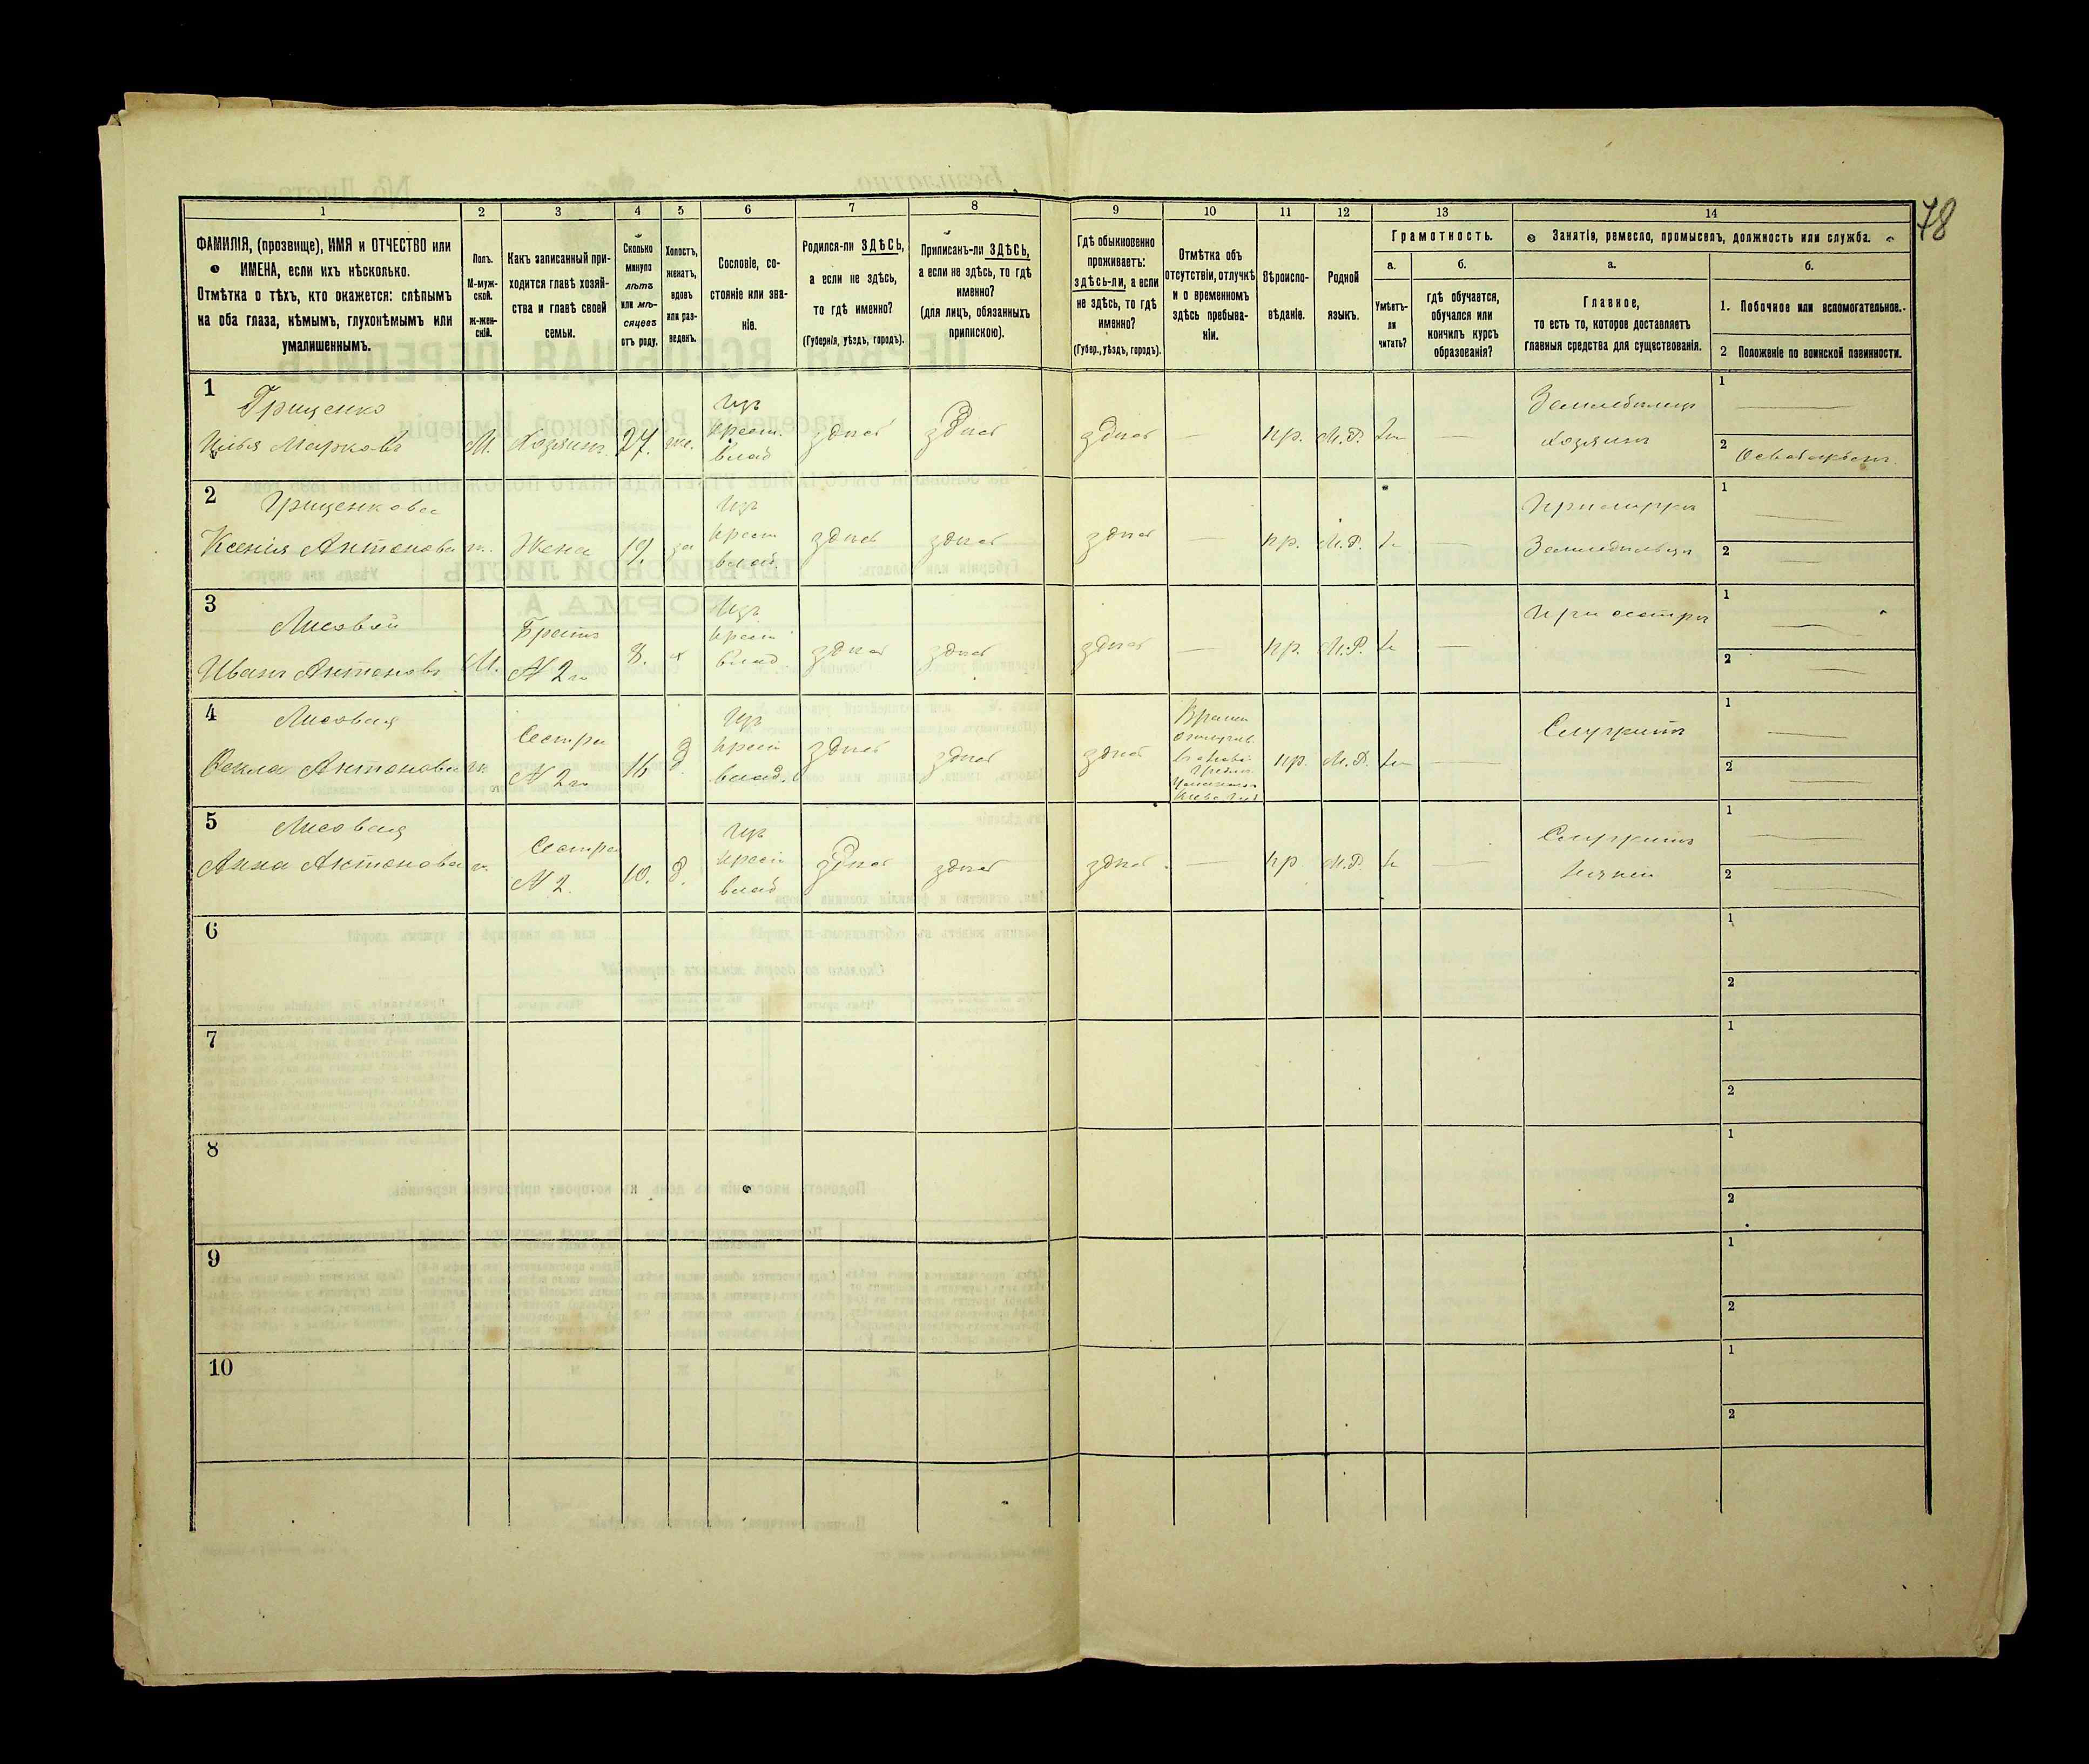 78
1 2 3 4 5 6 7 8 9 10 11 12 13 14
ФАМИЛІЯ, (прозвище), ИМЯ и ОТЧЕСТВО или
ИМЕНА, если ихъ нѣсколько.
Отмѣтка о тѣхъ, кто окажется: слѣпымъ
на оба глаза, нѣмымъ, глухонѣмымъ или
умалишеннымъ.
Полъ.
М-муж-
ской.
ж-жен-
скій.
Какъ записанный при-
ходится главѣ хозяй-
ства и главѣ своей
семьи.
Сколько
минуло
лѣтъ
или мѣ-
сяцевъ
отъ роду.
Холостъ,
женатъ,
вдовъ
или раз-
веденъ.
Сословіе, со-
стояніе или зва-
ніе.
Родился-ли ЗДѢСЬ,
а если не здѣсь,
то гдѣ именно?
(Губернія, уѣздъ, городъ).
Приписанъ-ли ЗДѢСЬ,
а если не здѣсь, то гдѣ
именно?
(для лицъ, обязанныхъ
припискою).
Гдѣ обыкновенно
проживаетъ:
здѣсь-ли, а если
не здѣсь, то гдѣ
именно?
(Губер., уѣздъ, городъ).
Отмѣтка объ
отсутствіи, отлучкѣ
и о временномъ
здѣсь пребыва-
ніи.
Вѣроиспо-
вѣданіе.
Родной
языкъ.
Грамотность.
а.
Умѣетъ-
ли
читать?
б.
гдѣ обучается,
обучался или
кончилъ курсъ
образованія?
Занятіе, ремесло, промыселъ, должность или служба.
а.
Главное,
то есть то, которое доставляетъ
главныя средства для существованія.
б.
1. Побочное или вспомогательное.
2 Положеніе по воинской повинности.
1
Грищенко
Илья Марковъ
М.
Хозяинъ
27.
же.
Изъ
крест.
влад
здѣсь
здѣсь
здѣсь
—
пр.
М.Р.
—
Земледѣлецъ
хозяинъ
1 —
2
2
Грищенкова
Ксенія Антонова
ж.
Жена
19
за
Изъ
крест
влад.
здѣсь
здѣсь
здѣсь
—
пр.
М.Р.
—
1 —
2 —
3
Лисовой
Иванъ Антоновъ
М.
Братъ
№ 2го
8.
х
Изъ
крест
влад
здѣсь
здѣсь
здѣсь
—
пр.
М.Р.
—
При сестрѣ
1 —
2 —
4
Лисовая
Ѳекла Антонова
ж
Сестра
№ 2го
16
д
Изъ
крест
влад.
здѣсь
здѣсь
здѣсь
пр.
М.Р.
—
Служитъ
1 —
2 —
5
Лисовая
Анна Антонова
ж.
Сестра
№ 2.
10.
д.
Изъ
крест
влад
здѣсь
здѣсь
здѣсь
—
пр
М.Р.
—
Служитъ
1 —
2 —
6
1
2
7
1
2
8
1
2
9
1
2
10
1
2